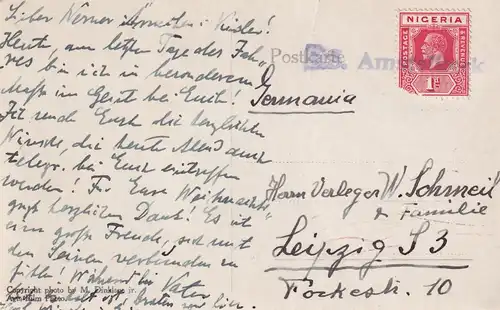 Lieber Werner, Annelies u. Kinder!
Heute, am letzten Tage des Jah-
res bin ich in besonderem
Maße im Geist bei Euch!
Ist auch Euch die herzlichsten
Wünsche, die heute Abend auch
telegr. bei Euch eintreffen
werden! Für Eure Weihnachts-
grüße herzlichen Dank! Es ist
eine große Freude, sich mit
den Seinen verbunden zu
fühlen! Während bei Vater
ist, braten wir hier.
Copyright photo by M. Dinklage jr.
Postkarte
NIGERIA
POSTAGE & REVENUE
1d
Germania
Herrn Verleger W. Schmeil
& Familie
Leipzig S3
Fockestr. 10